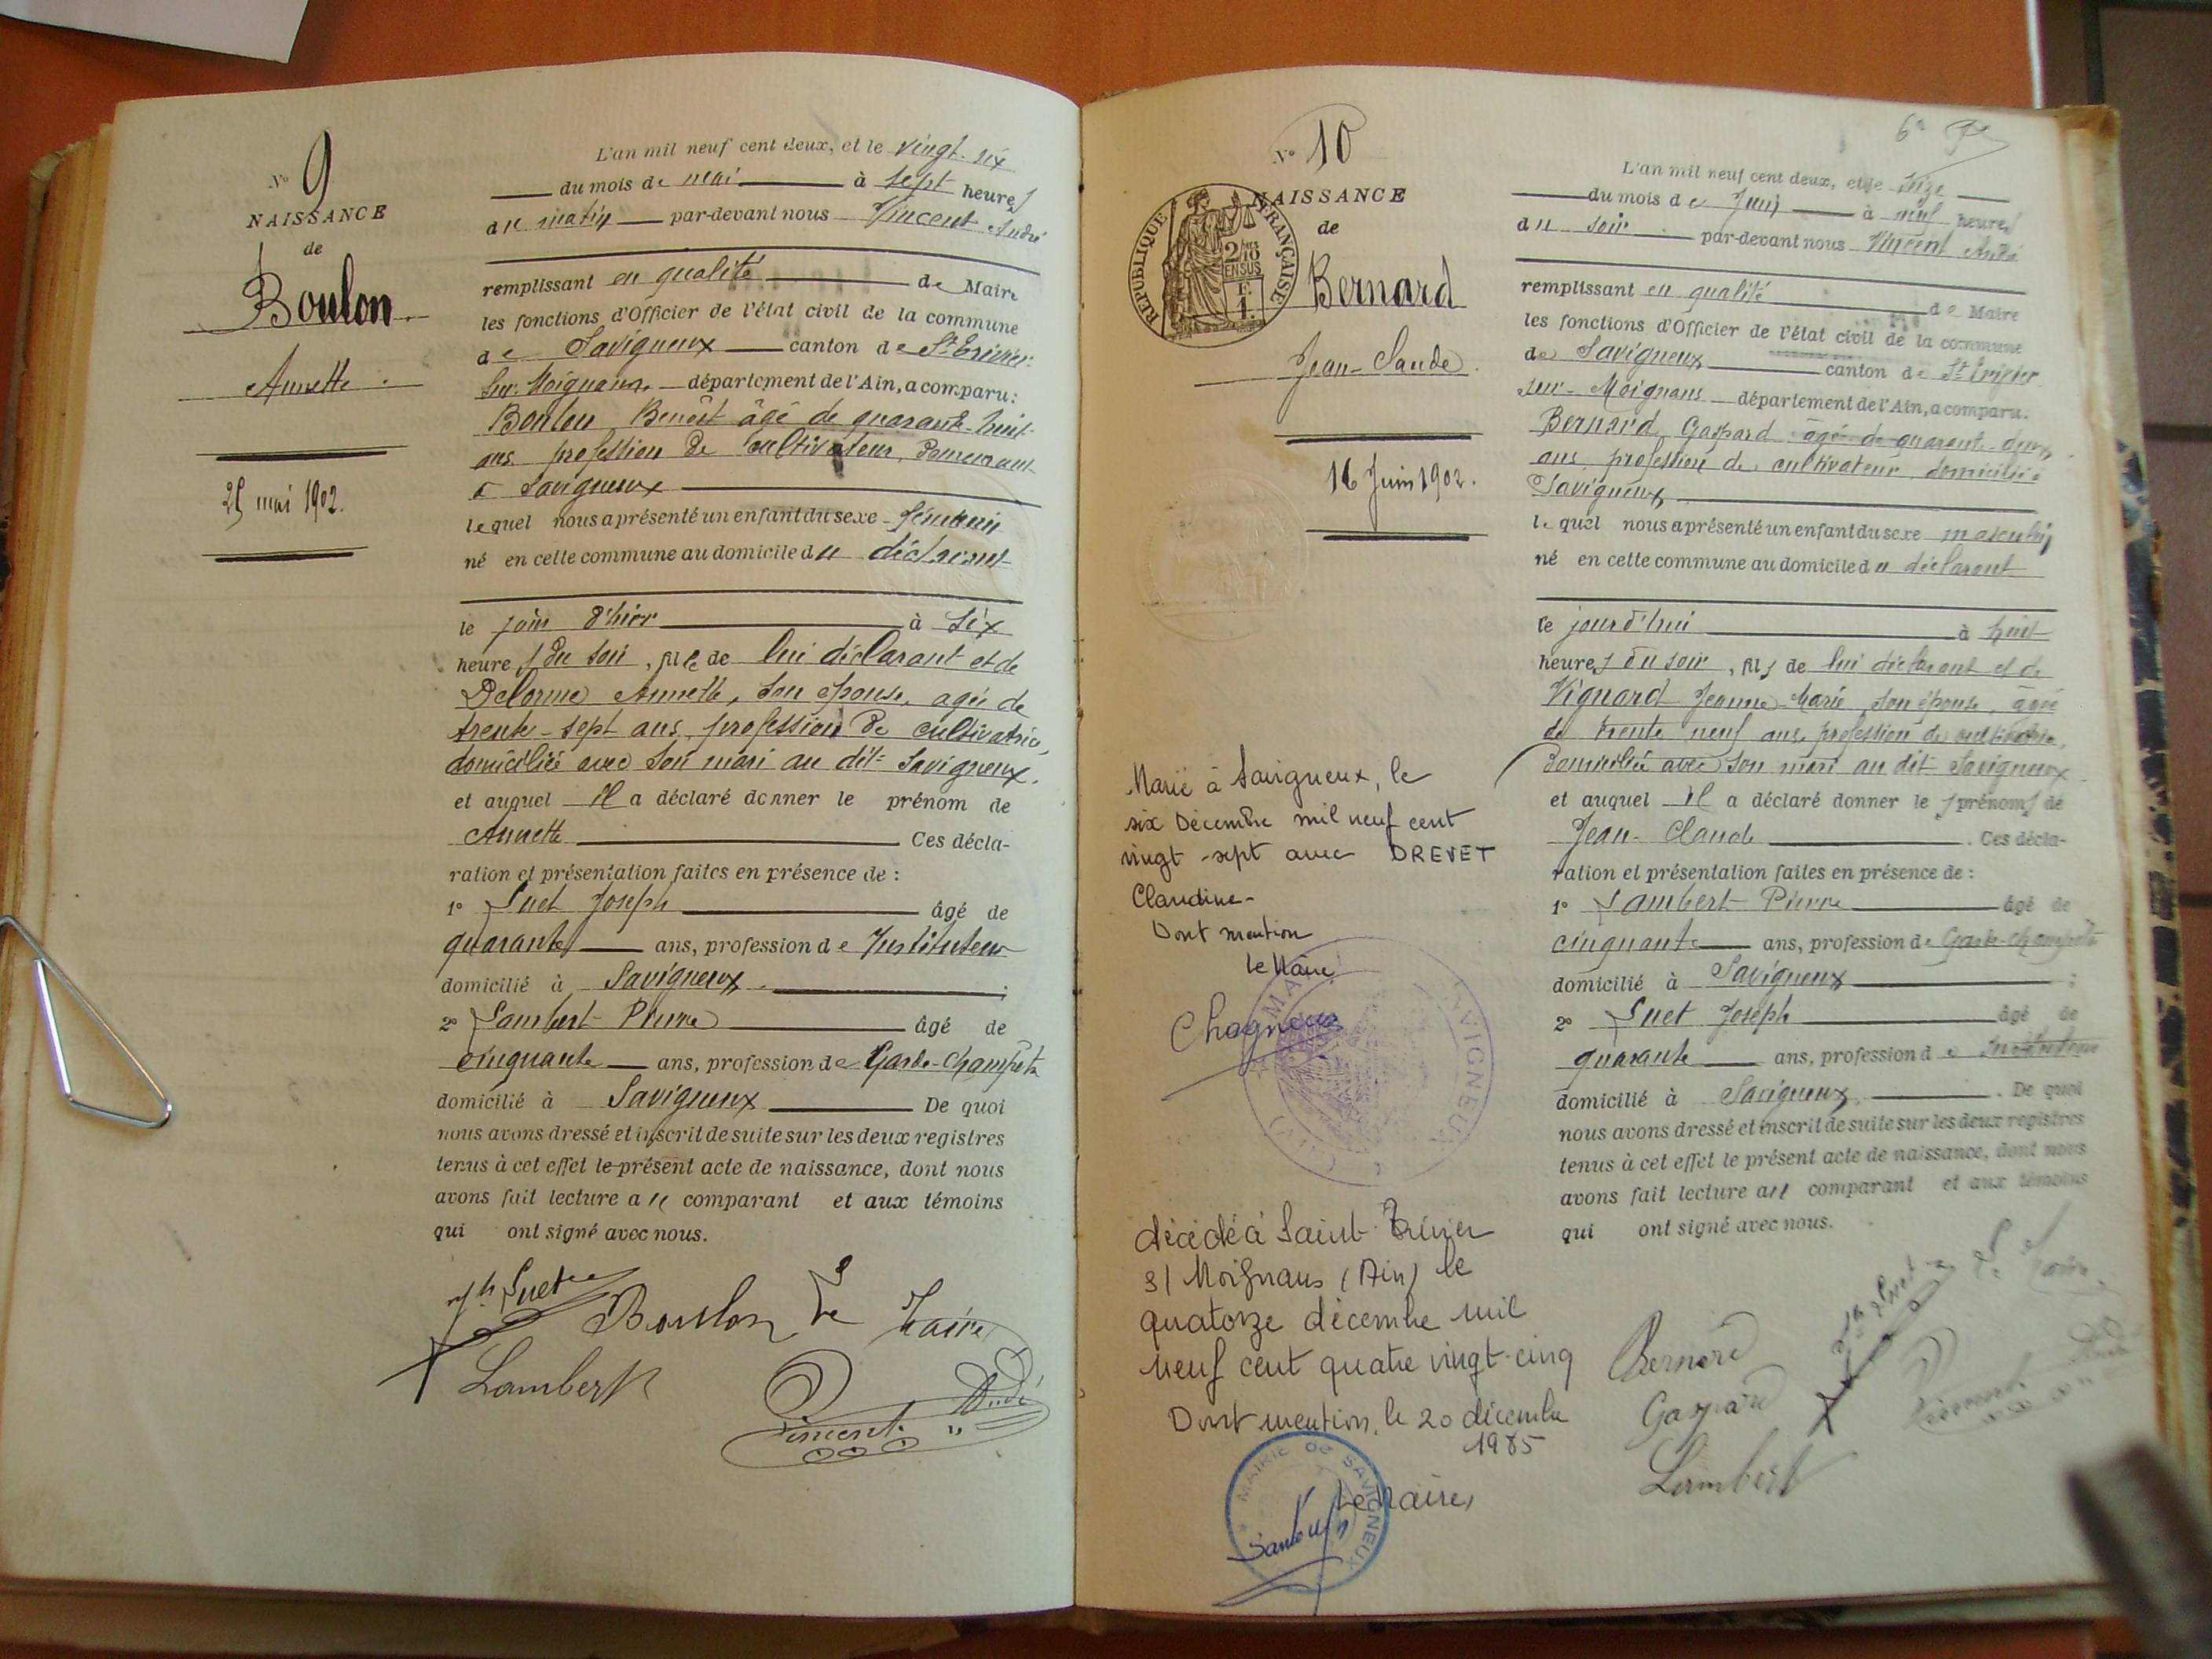 N° 9
NAISSANCE
de
Boulon
Annette
25 mai 1902.
L'an mil neuf cent deux, et le vingt-six
du mois de mai à sept heures
du matin par-devant nous Vincent André
remplissant en qualité de Maire
les fonctions d'Officier de l'état civil de la commune
de Savigneux canton de St Trivier
sur Moignans département de l'Ain, a comparu:
Boulon Benoît âgé de quarante-huit
ans profession de cultivateur, demeurant
à Savigneux
lequel nous a présenté un enfant du sexe féminin
né en cette commune au domicile du déclarant
le jour d'hier à six
heures du soir, fille de lui déclarant et de
Delorme Annette, son épouse, agée de
trente-sept ans, profession de cultivatrice,
domiciliée avec son mari au dit Savigneux.
et auquel il a déclaré donner le prénom de
Annette Ces décla-
ration et présentation faites en présence de :
1° Suet Joseph âgé de
quarante ans, profession de Instituteur
domicilié à Savigneux ;
2° Lambert Pierre âgé de
cinquante ans, profession de Garde-champêtre
domicilié à Savigneux De quoi
nous avons dressé et inscrit de suite sur les deux registres
tenus à cet effet le présent acte de naissance, dont nous
avons fait lecture au comparant et aux témoins
qui ont signé avec nous.
Jh Suet Boulon Le Maire
Lambert
Vincent André
6e
N° 10
NAISSANCE
de
REPUBLIQUE FRANÇAISE
2/10
EN SUS
Bernard
Jean-Claude.
16 Juin 1902.
Marié à Savigneux, le
six Décembre mil neuf cent
vingt-sept avec DREVET
Claudine-
Dont mention
le Maire
Chagneux
MAIRIE SAVIGNEUX (AIN)
décédé à Saint-Trivier
s/ Moignans (Ain) le
quatorze décembre mil
neuf cent quatre vingt-cinq
Dont mention, le 20 décembre
1985
Le Maire,
MAIRIE DE SAVIGNEUX
L'an mil neuf cent deux, et le seize
du mois de Juin à neuf heures
du soir par-devant nous Vincent André
remplissant en qualité de Maire
les fonctions d'Officier de l'état civil de la commune
de Savigneux canton de St Trivier
sur-Moignans département de l'Ain, a comparu.
Bernard Gaspard âgé de quarante-deux
ans, profession de cultivateur domicilié à
Savigneux
lequel nous a présenté un enfant du sexe masculin
né en cette commune au domicile du déclarant
le jourd'hui à huit
heures du soir, fils de lui déclarant et de
Vignard Jeanne-Marie son épouse, âgée
de trente neuf ans, profession de cultivatrice,
domiciliée avec son mari au dit Savigneux
et auquel il a déclaré donner les prénoms de
Jean-Claude . Ces décla-
ration et présentation faites en présence de :
1° Lambert Pierre âgé de
cinquante ans, profession de Garde-champêtre
domicilié à Savigneux ;
2° Suet Joseph âgé de
quarante ans, profession de Instituteur
domicilié à Savigneux . De quoi
nous avons dressé et inscrit de suite sur les deux registres
tenus à cet effet le présent acte de naissance, dont nous
avons fait lecture au comparant et aux témoins
qui ont signé avec nous.
Jh Suet Le Maire
Bernard
Gaspard
Vincent André
Lambert